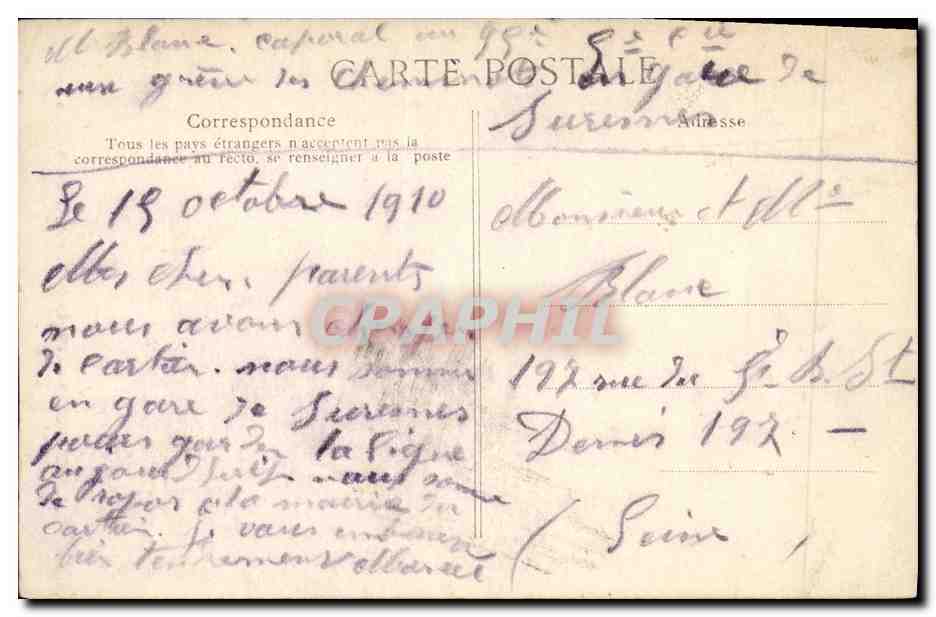 M Blanc. caporal au 99e 5e Cie
aux grève des chemins en gare de
Suresnes
CARTE POSTALE
Correspondance
Tous les pays étrangers n'acceptent pas la
correspondance au recto, se renseigner à la poste
Adresse
Le 15 octobre 1910
Mes chers parents
nous avons changé
de cartier. nous sommes
en gare de Suresnes
pour garder la ligne
nous somme
de repos a la mairie du
cartier. Je vous embrasse
bien tendrement Marcel
Monsieur et Me
Blanc
197 rue du St
Denis 197 —
(Seine)
CPAPHIL